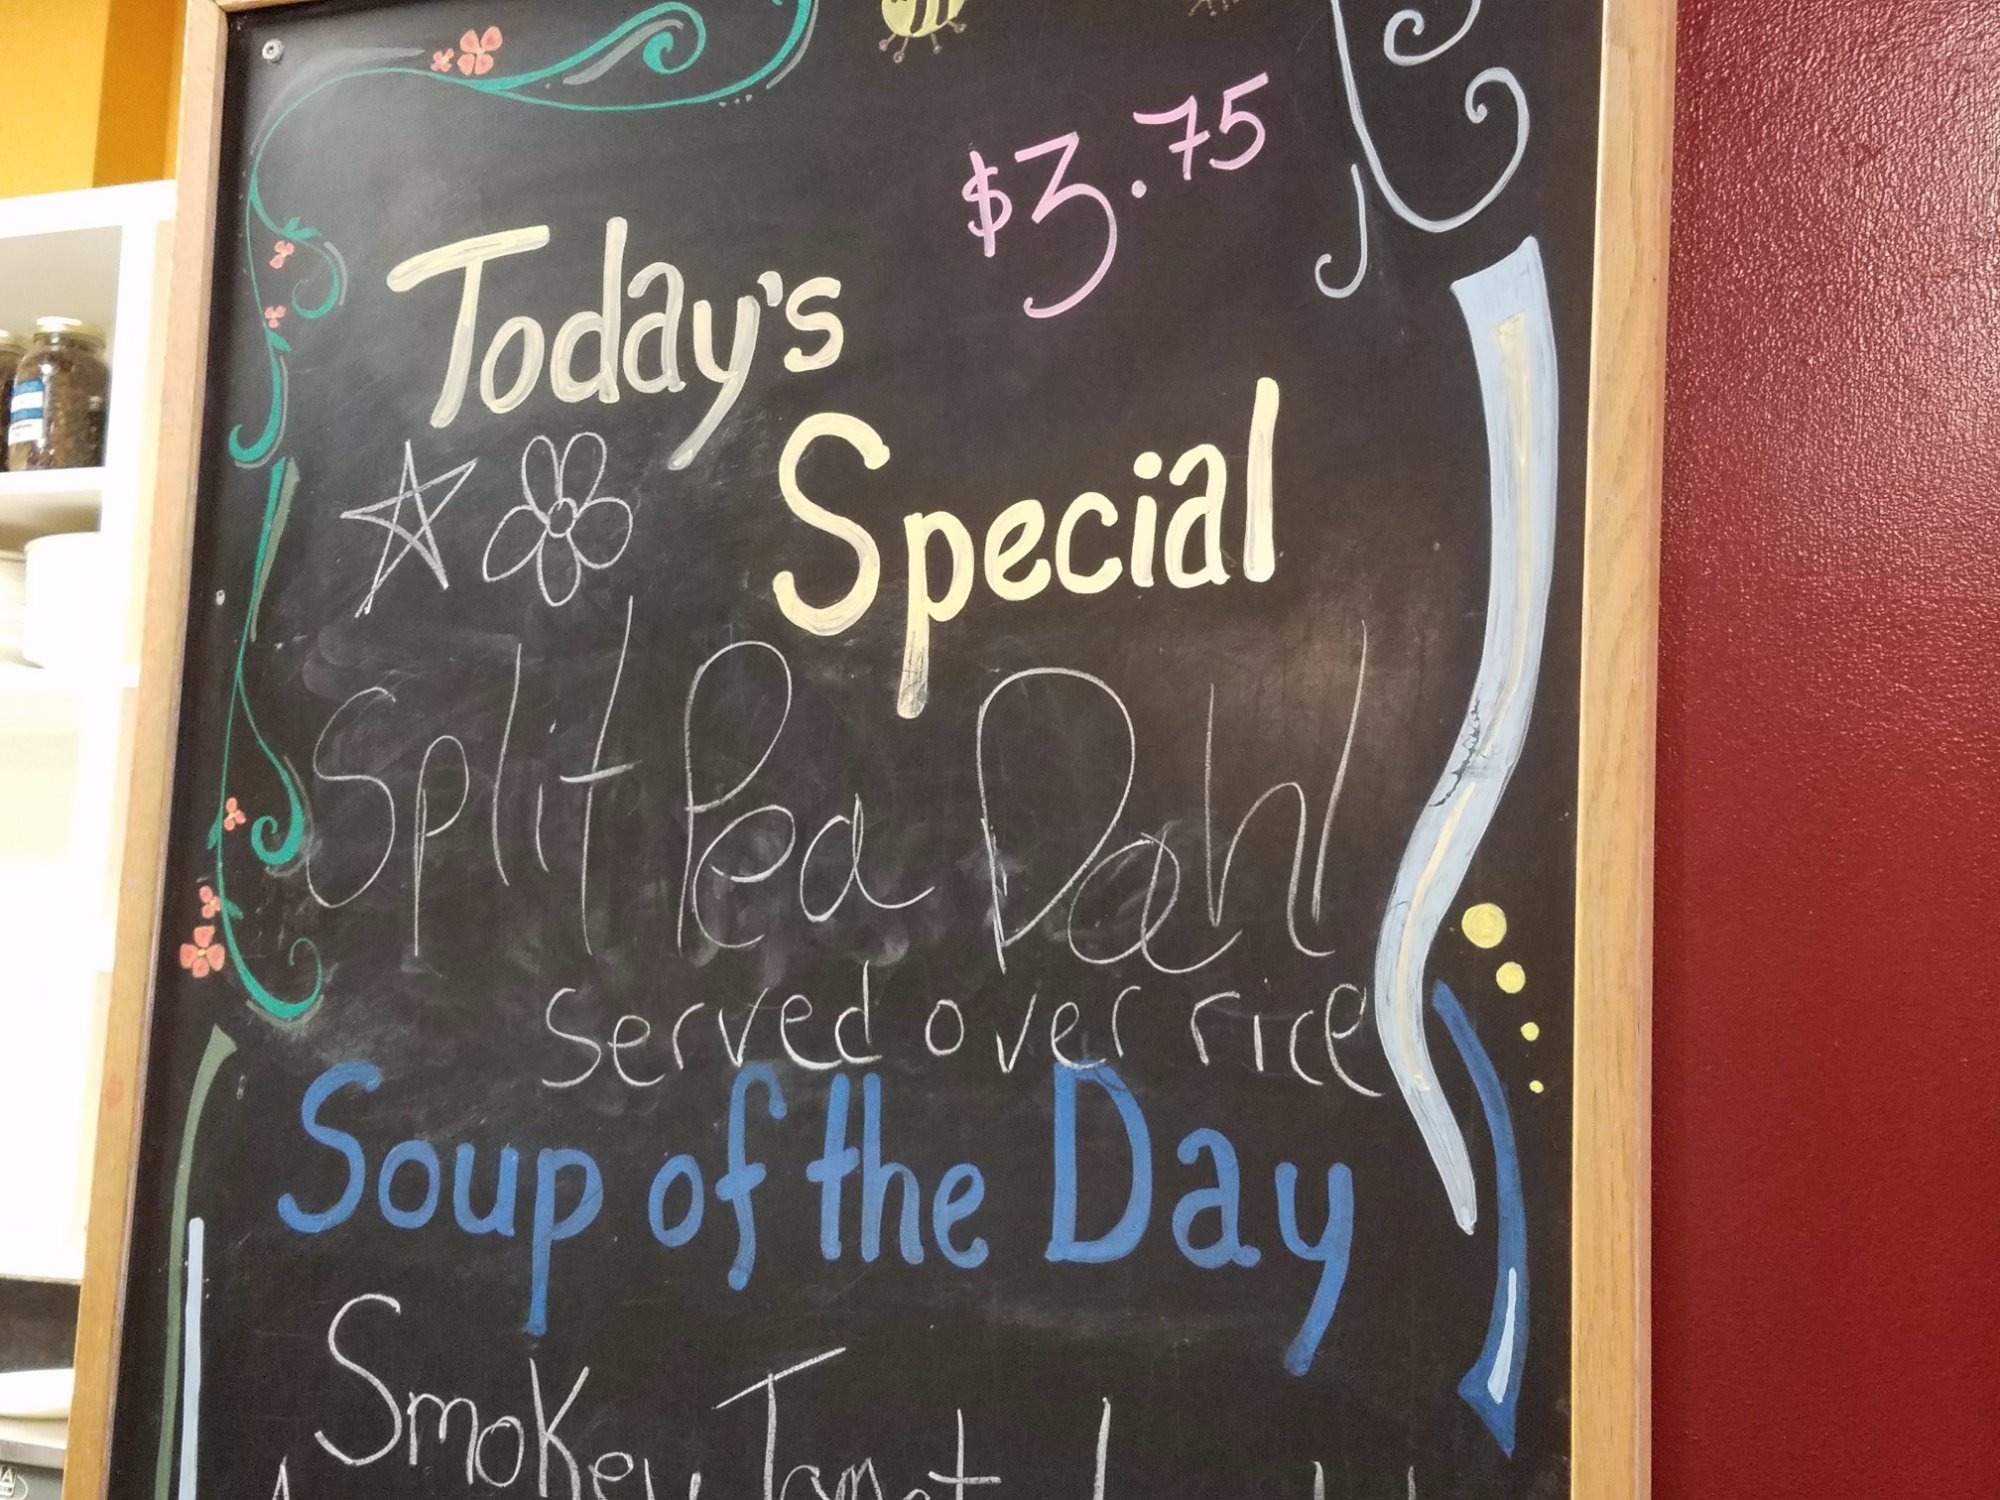 $3.75
Today's
Special
Split Pea Dahl
served over rice
Soup of the Day
Smokey